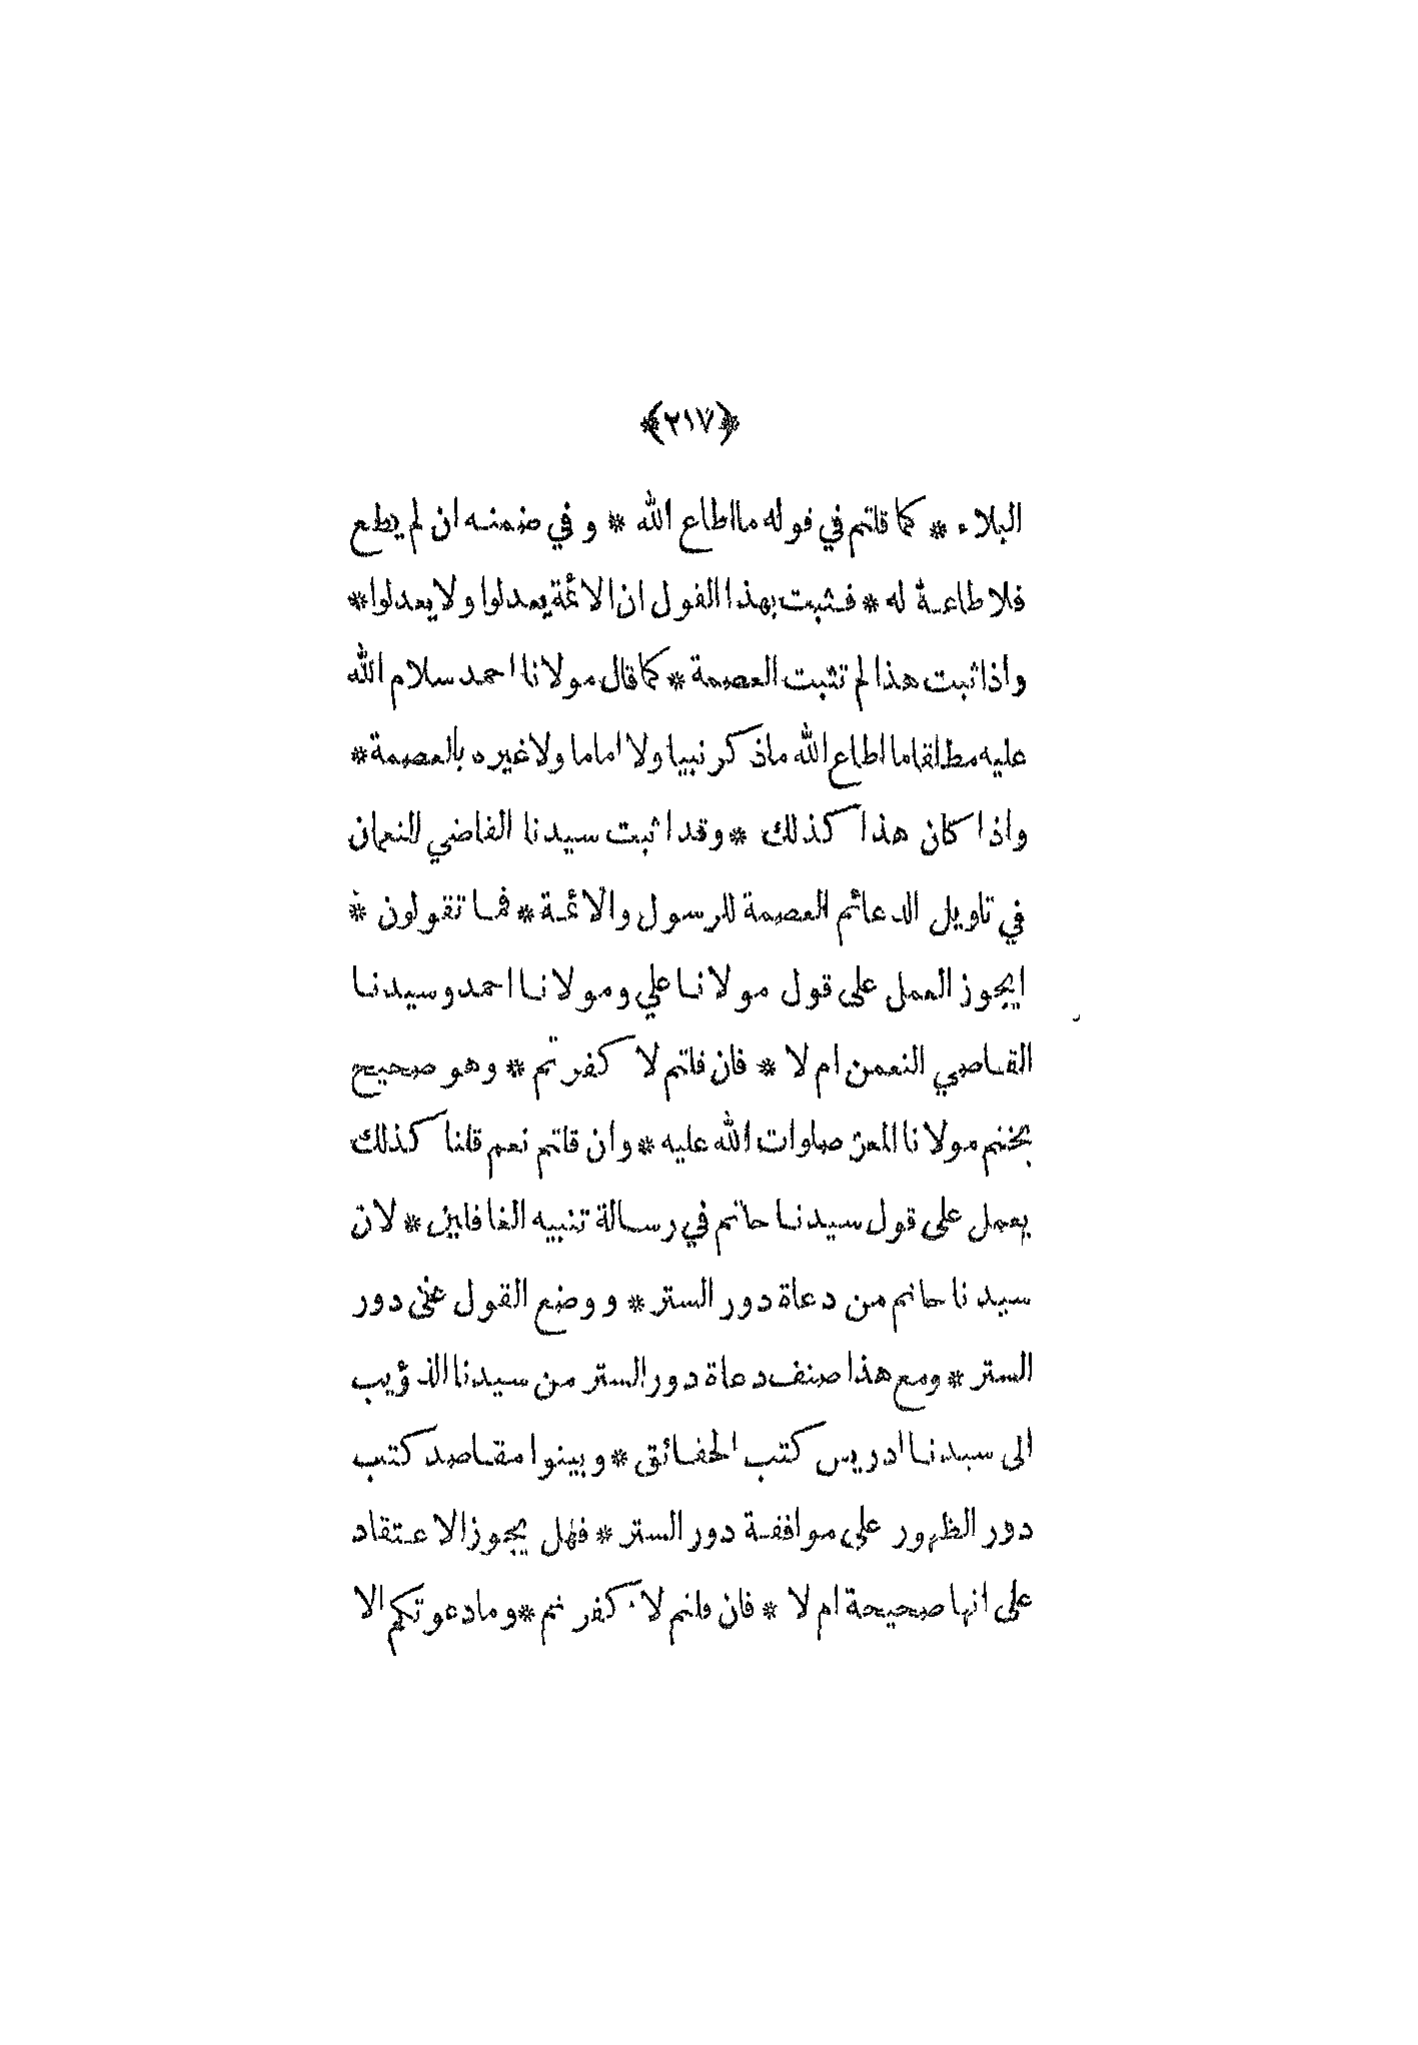 ﴿٢١٧﴾
البلاء * كما قلتم في قوله ما اطاع الله * و في ضمنه ان لم يطع
فلا طاعة له * فثبت بهذا القول ان الائمة يعدلوا ولا يعدلوا *
واذا ثبت هذا لم تثبت العصمة * كما قال مولانا احمد سلام الله
عليه مطلقا ما اطاع الله ما ذكر نبيا ولا اماما ولا غيره بالعصمة *
واذا كان هذا كذلك * وقد اثبت سيدنا القاضي النعمان
في تاويل الدعائم العصمة للرسول والائمة * فما تقولون *
ايجوز العمل على قول مولانا علي ومولانا احمد وسيدنا
القاضي النعمن ام لا * فان قلتم لا كفرتم * وهو صحيح
بختم مولانا المعز صلوات الله عليه * وان قلتم نعم قلنا كذلك
يعمل على قول سيدنا حاتم في رسالة تنبيه الغافلين * لان
سيدنا حاتم من دعاة دور الستر * ووضع القول على دور
الستر * ومع هذا صنف دعاة دور الستر من سيدنا الذؤيب
الى سيدنا ادريس كتب الحقائق * وبينوا مقاصد كتب
دور الظهور على موافقة دور الستر * فهل يجوز الاعتقاد
على انها صحيحة ام لا * فان قلتم لا كفرتم * وما دعوتكم الا